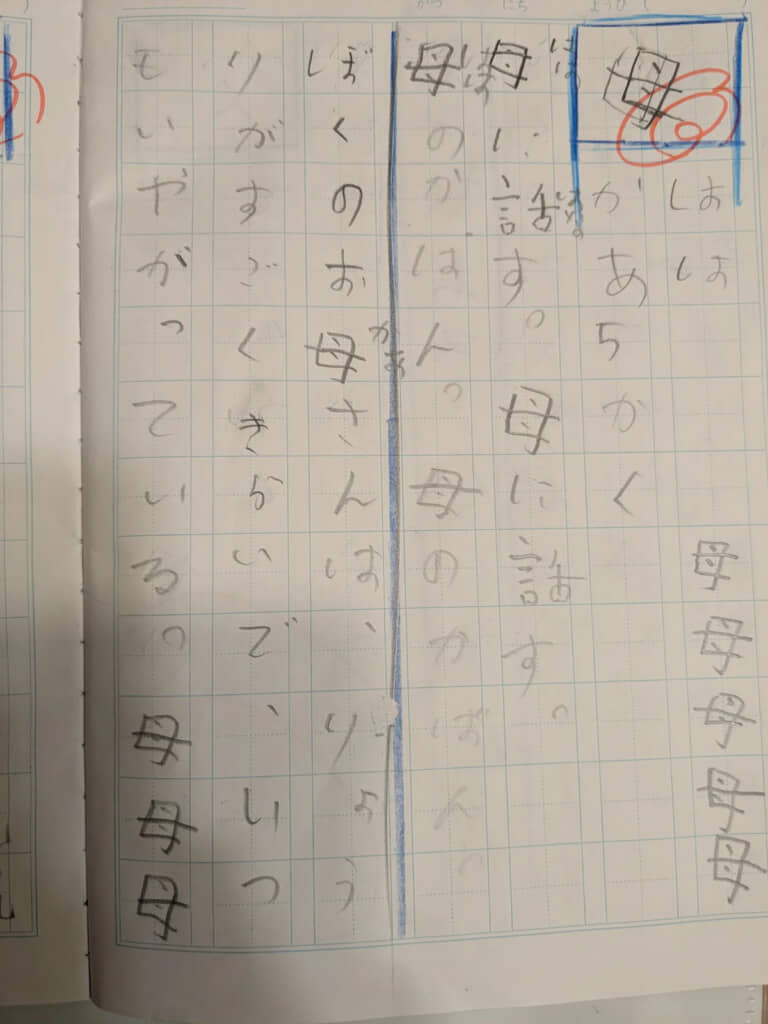 がつ にち ようび ( )
母
はは 母母母母母
かあ5かく
母はははに話はなす。母に話す。
母ははのがはん。母のかばん。
ぼくのお母かあさんは、りょう
りがすごくきらいで、いつ
もいやがっている。母母母